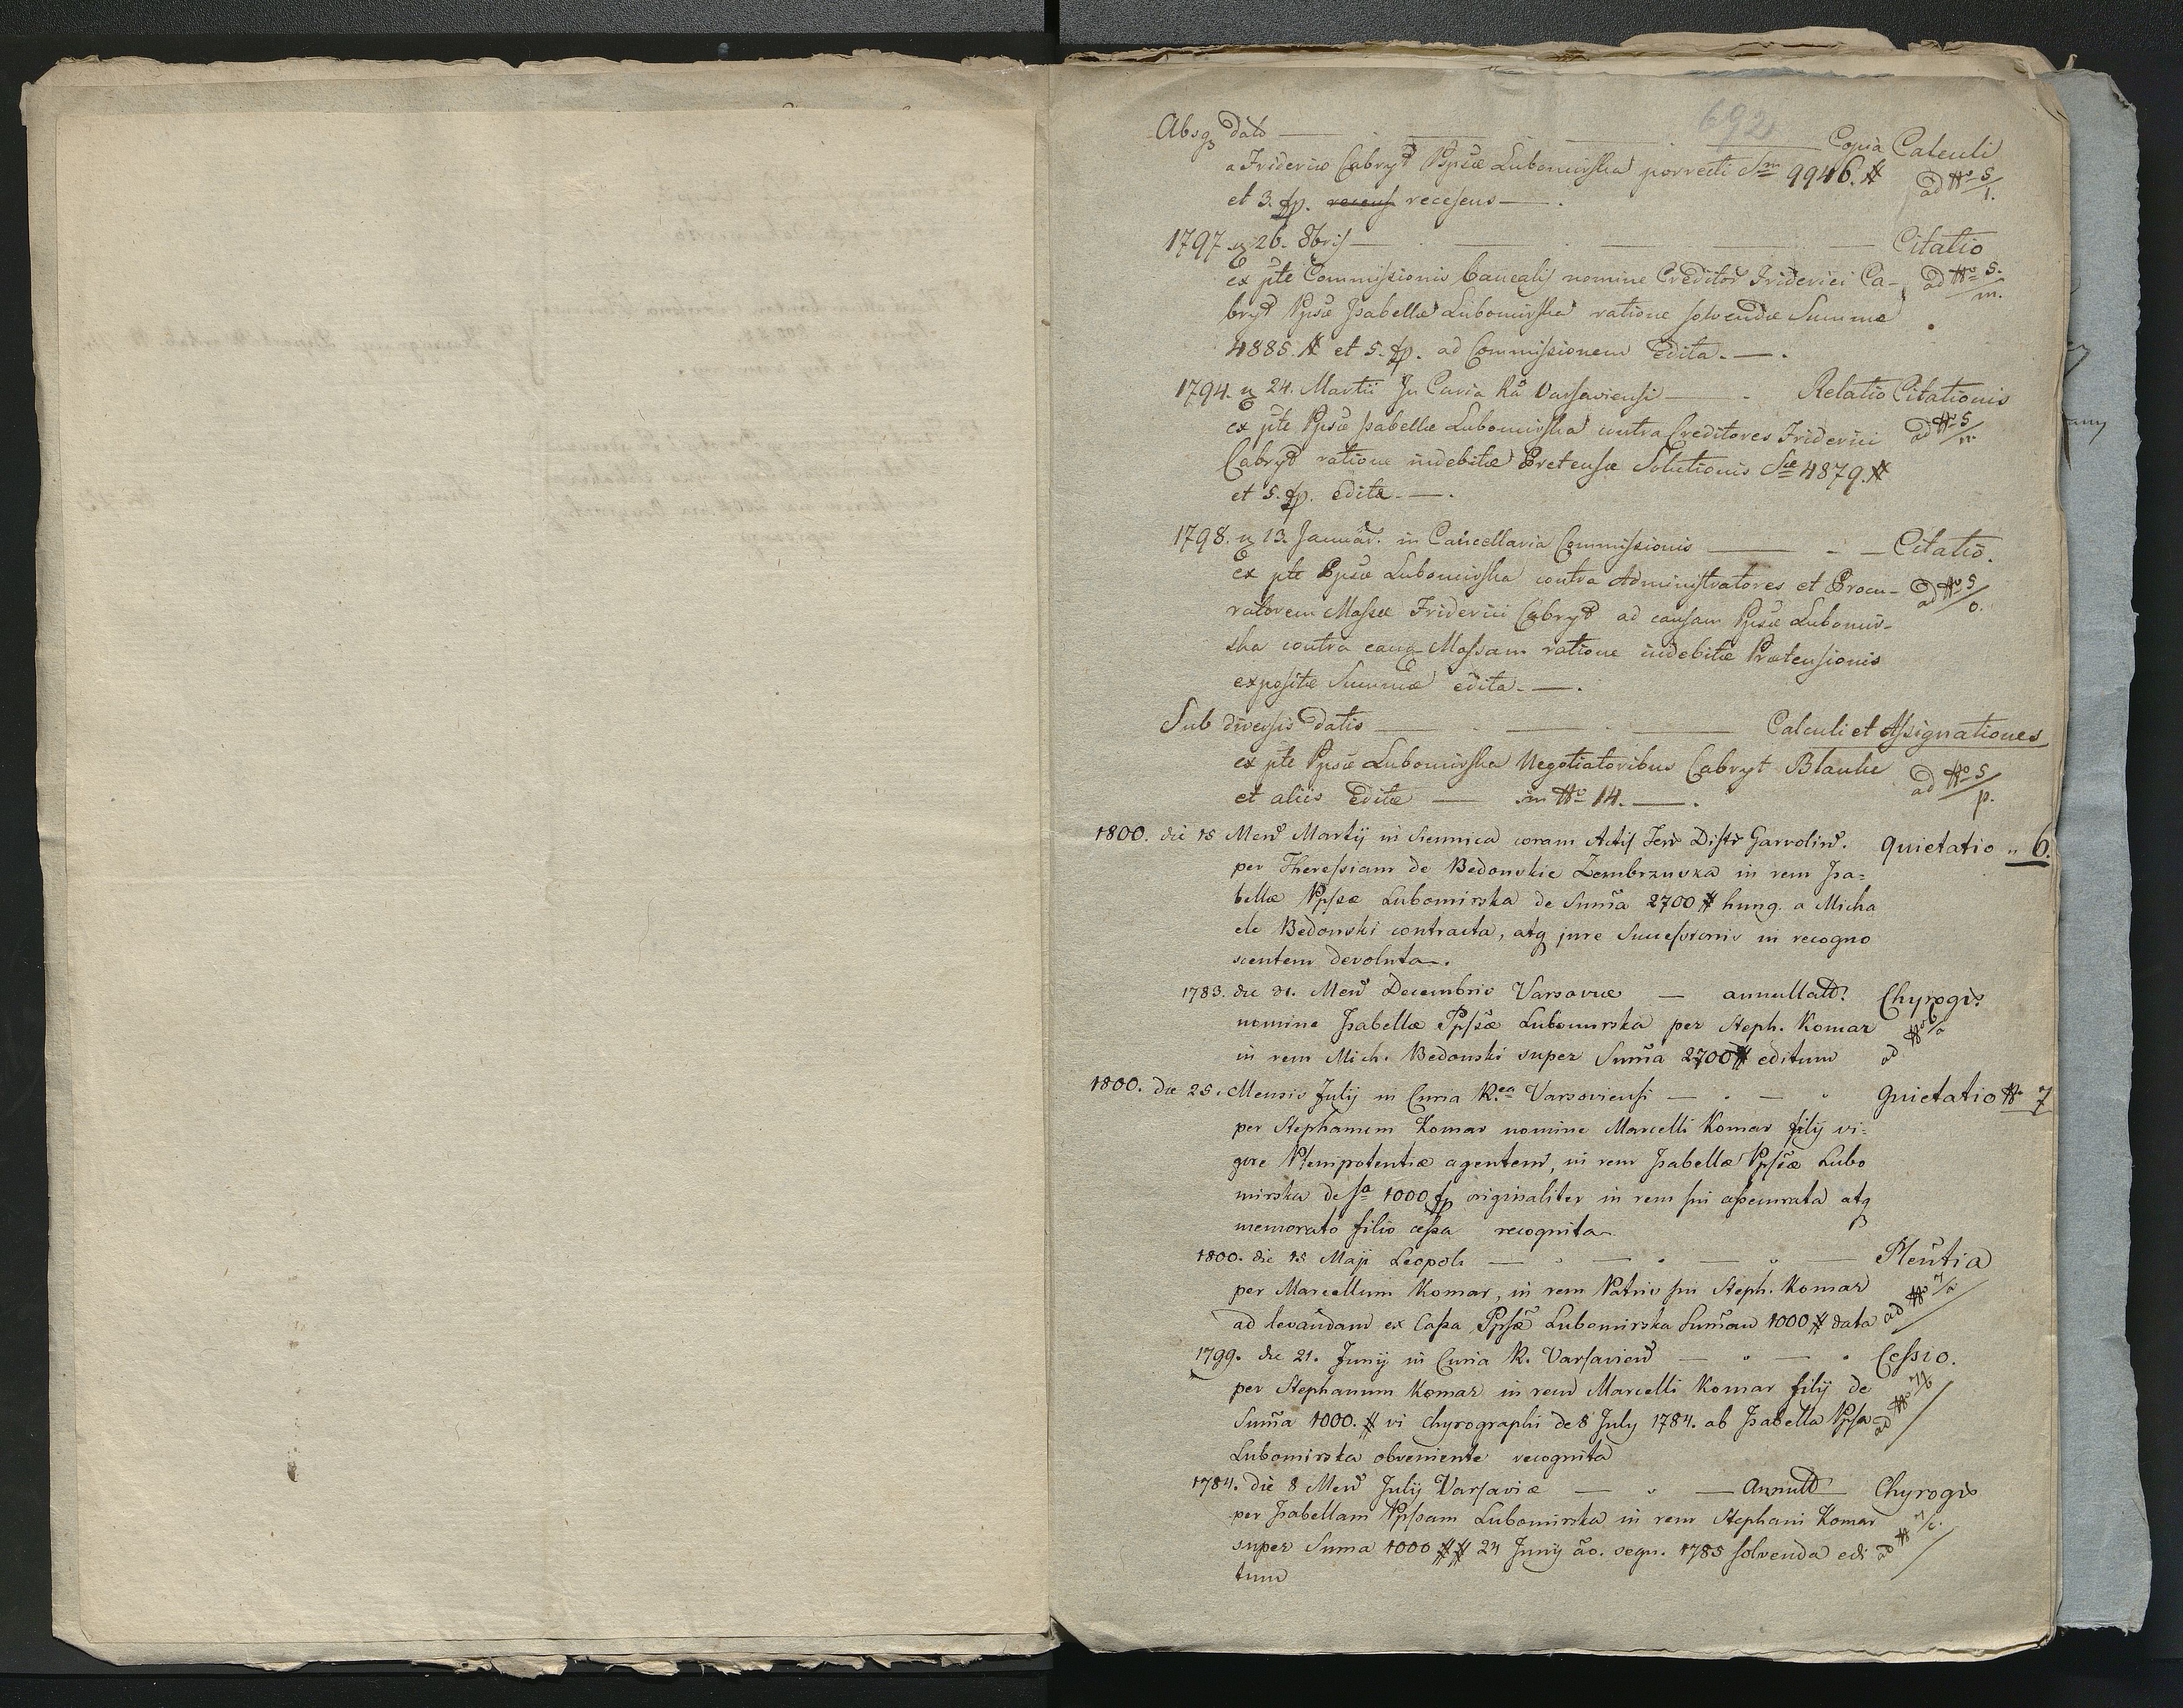 692
Absq dato — Copia Calculi
a Friderico Cabryt Ppsæ Lubomirska porrecti Sm 9946. #
ad No 5/l.
et 3. fp. recens recesens — .
1797. 26. 8bris — Citatio
ex pte Commissionis Cancealis nomine Creditor Friderici Ca-
ad No 5./m.
bryt Ppsæ Isabellæ Lubomirska ratione solvendæ Summæ
4885. # et 5. fp. ad Commissionem edita. — .
1794. 24. Martii In Curia Ra Varsaviensi — Relatio Citationis
ex pte Ppsæ Isabellæ Lubomirska contra Creditores Friderici
ad No 5/n.
Cabryt ratione indebitæ Pretensæ Solutionis Sæ 4879. #
et 5. fp. edita. — .
1798. 13. Januar. in Cancellaria Commissionis — Citatio.
ex pte Ppsæ Lubomirska contra Administratores et Procu-
ad No 5/o.
ratorem Massæ Friderici Cabryt ad causam Ppsæ Lubomir-
ska contra eanq Massam ratione indebitæ Prætensionis
expositæ Summæ edita. — .
Sub diversis datis — Calculi et Assignationes
ex pte Ppsæ Lubomirska Negotiatoribus Cabryt Blanke
ad No 5/p.
et aliis Editæ — in No 14. — .
1800. die 15 Mens Martij in Siennica coram Actis Terr Distr Garvolin. quietatio „ 6.
per Theressiam de Bedonskie Zembrzuska in rem Isa=
bellæ Ppssæ Lubomirska de Suma 2700 # hung. a Micha
ele Bedonski contracta, atq jure Successionis in recogno
scentem devoluta.
1783. die 31. Mens Decembris Varsoviæ — annullatd. Chyrogr.
nomine Isabellæ Ppssæ Lubomirska per Steph. Komar
ad No 6/a
in rem Mich. Bedonski super Suma 2700 # editum
1800. die 25. Mensis Julij in Curia R.ea Varsoviensi — . — „ quietatio No 7
per Stephanum Komar nomine Marcelli Komar filij vi=
gore Plenipotentiæ agentem, in rem Isabellæ Ppssæ Lubo
mirska de sa 1000 fp originaliter in rem sui assecurata atq
memorato filio cessa recognita
1800. die 15 Maji Leopoli — Plentia
per Marcellum Komar, in rem Patris sui Steph. Komar
ad No 7/a
ad levandam ex Cassa Ppssæ Lubomirska Sumam 1000 # data
1799. die 21. Junij in Curia R. Varsavien — „ — . Cessio.
per Stephanum Komar in rem Marcelli Komar filij de
ad No 7/b
Suma 1000. # vi chyrographi de 8 July 1784. ab Isabella Ppssa
Lubomirska obveniente recognita
1784. die 8 Mens Julij Varsaviæ — „ — Annulld Chyrogr
per Isabellam Ppssam Lubomirska in rem Stephani Komar
ad No 7/c.
super Suma 1000 ## 24 Junij ao. sequ. 1785 solvenda edi
tum